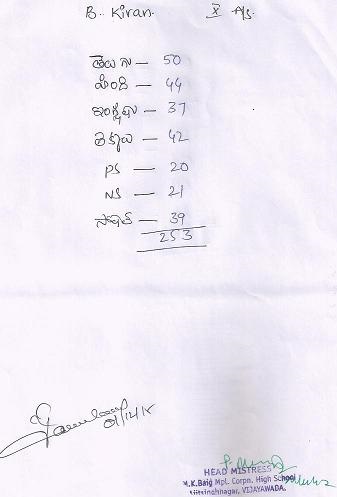 B. Kiran. X A/s.
తెలుగు — 50
హిందీ — 44
ఇంగ్లీషు — 37
లెక్కలు — 42
PS — 20
NS — 21
సోషల్ — 39
253
HEAD MISTRESS
M.K.Baig Mpl. Corpn. High School
VIJAYAWADA.